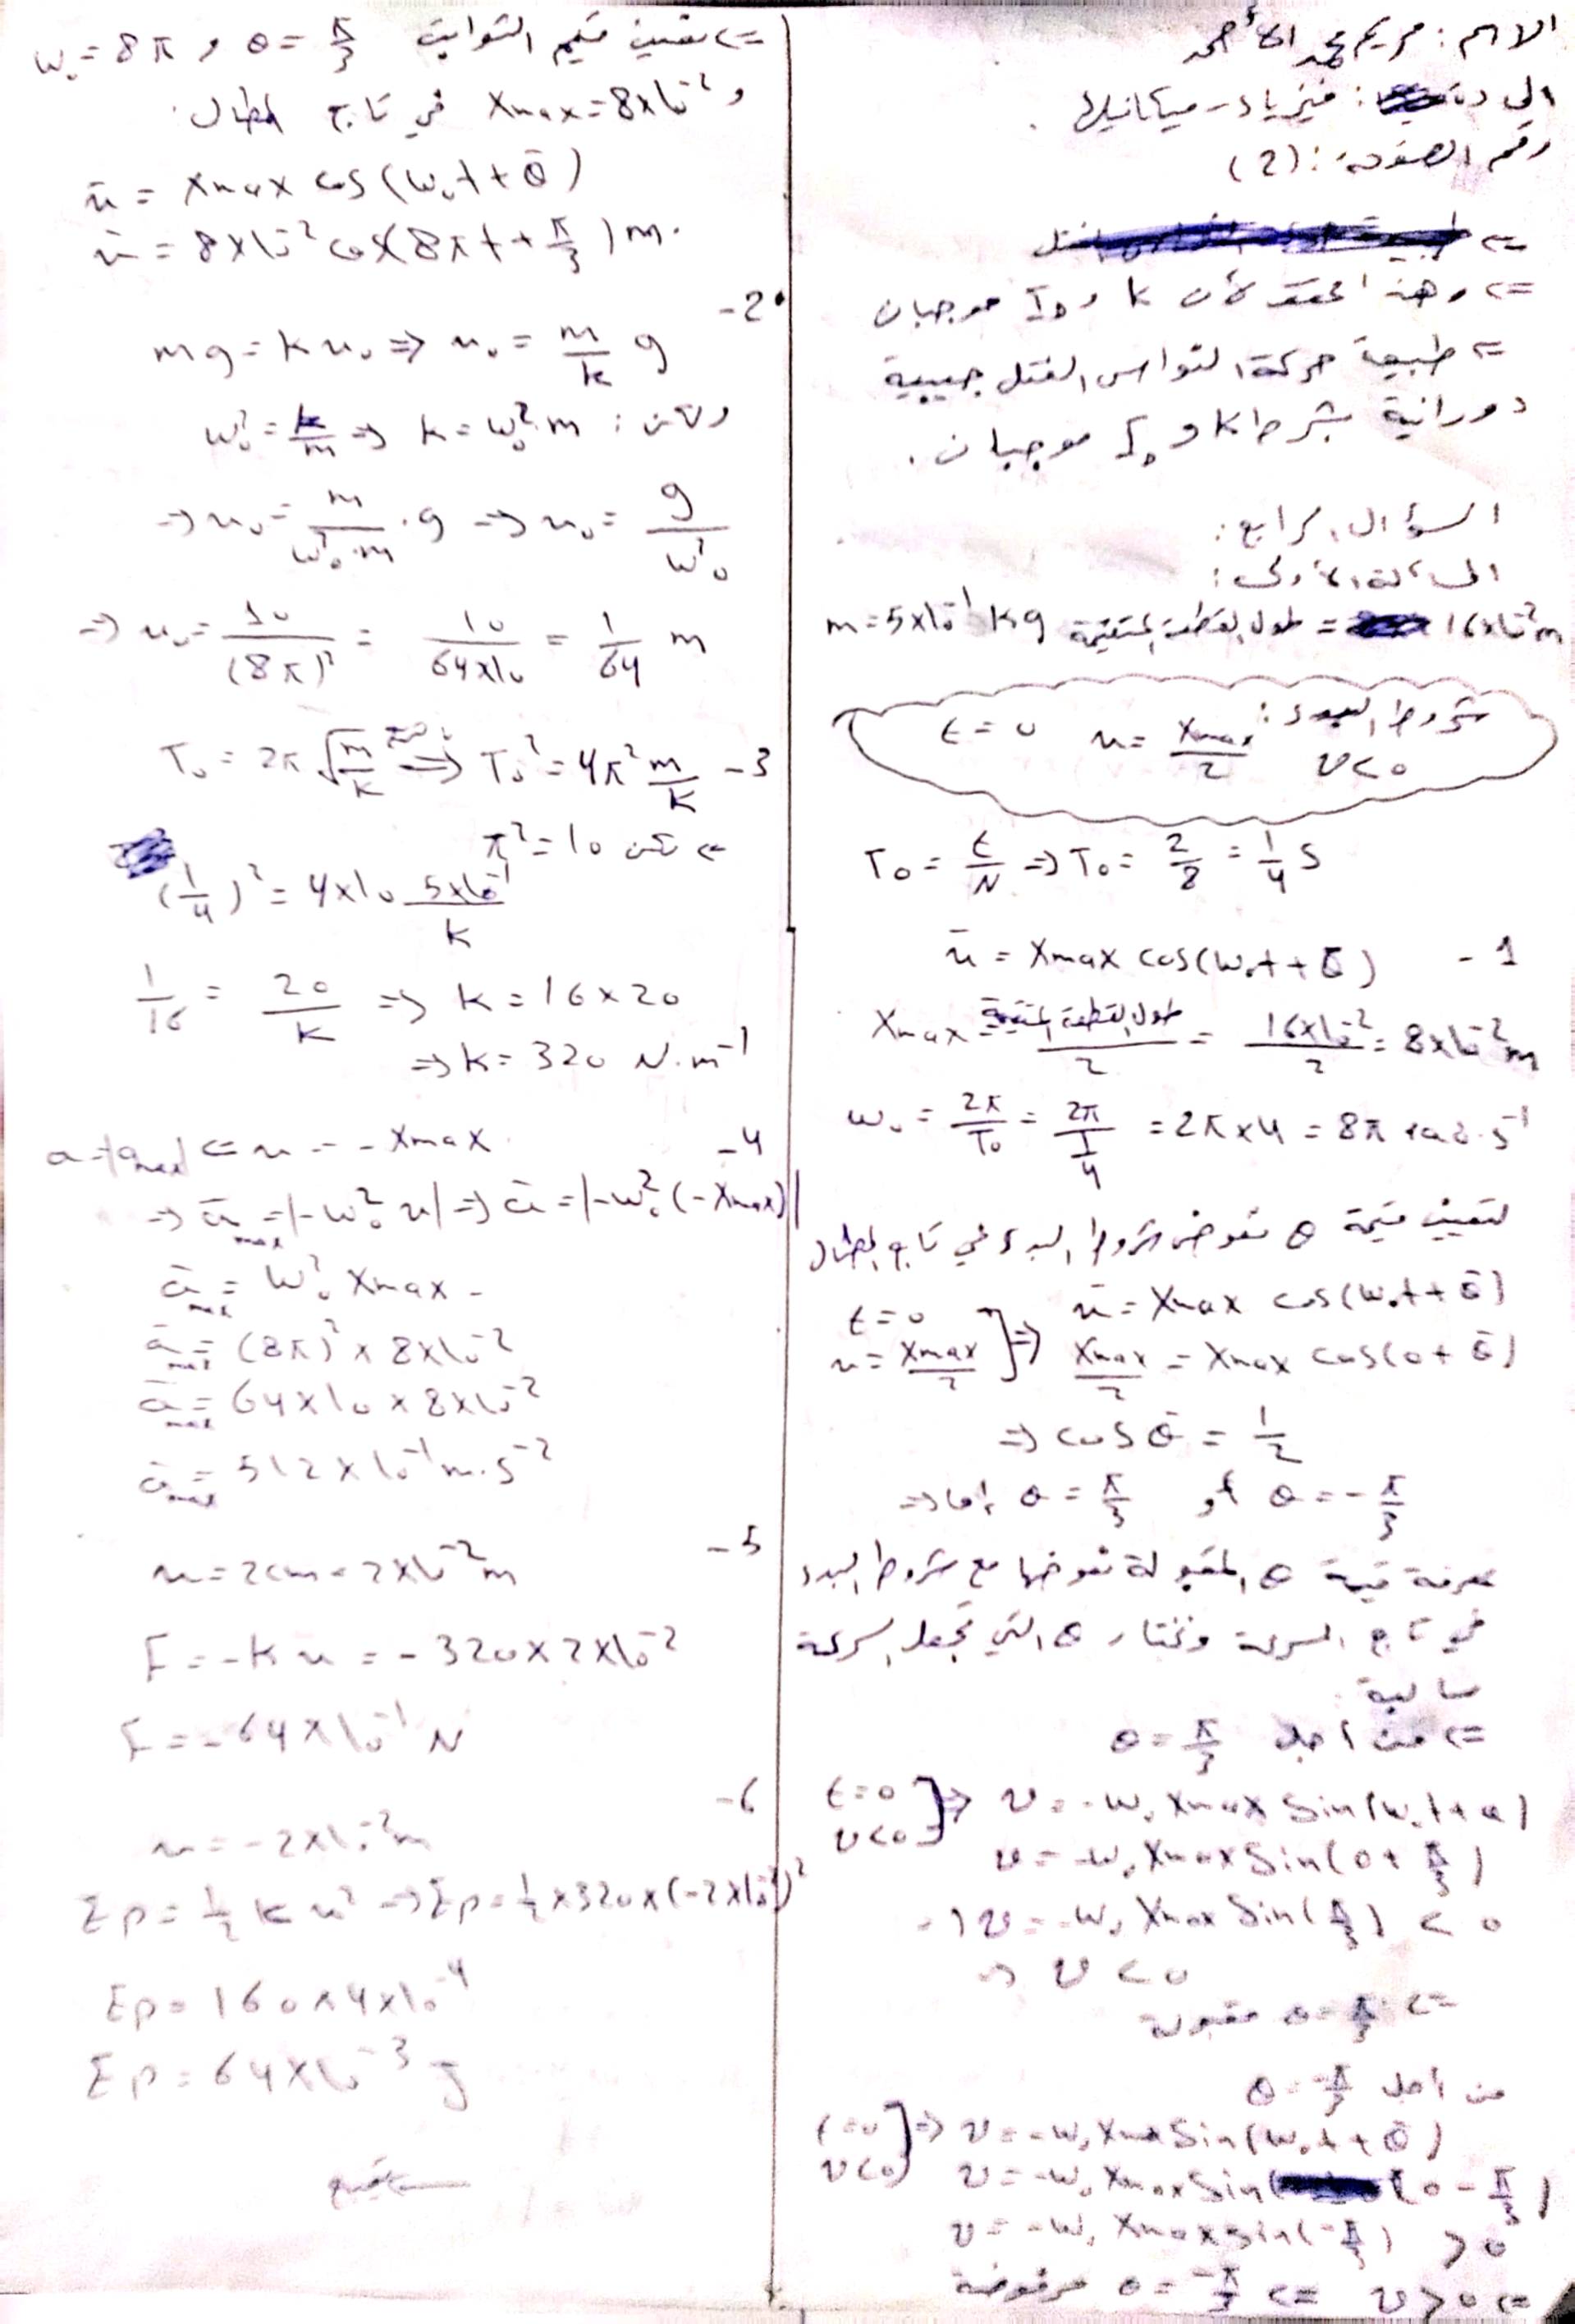 الاسم: مريم محمد الأحمد
المادة: فيزياء - ميكانيك.
رقم الصفحة: (2)
<= وهذا محقق لأن k و I₀ موجبان
<= طبيعة حركة النواس الفتل جيبية
دورانية بشرط k و I₀ موجبان.
السؤال الرابع:
المسألة الأولى:
m = 5×10⁻¹ kg طول القطعة المستقيمة = 16×10⁻² m
شروط البدء:
t = 0 x = Xmax/2 v < 0
T₀ = t/N => T₀ = 2/8 = 1/4 s
1 - x̄ = Xmax cos(ω₀t + θ̄)
Xmax = طول القطعة المستقيمة/2 = 16×10⁻²/2 = 8×10⁻² m
ω₀ = 2π/T₀ = 2π/(1/4) = 2π×4 = 8π rad.s⁻¹
لتعيين قيمة θ نعوض شروط البدء في تابع المطال
x̄ = Xmax cos(ω₀t + θ̄)
t = 0
x = Xmax/2 ] => Xmax/2 = Xmax cos(0 + θ̄)
=> cos θ̄ = 1/2
=> إما θ = π/3 أو θ = -π/3
لمعرفة قيمة θ المقبولة نعوضها مع شروط البدء
في تابع السرعة ونختار θ التي تجعل السرعة
سالبة
<= من أجل θ = π/3
t = 0
v < 0 ] => v = -ω₀ Xmax sin(ω₀t + θ)
v = -ω₀ Xmax sin(0 + π/3)
=> v = -ω₀ Xmax sin(π/3) < 0
=> v < 0
<= θ = π/3 مقبولة
من أجل θ = -π/3
t = 0
v < 0 ] => v = -ω₀ Xmax sin(ω₀t + θ̄)
v = -ω₀ Xmax sin(0 - π/3)
v = -ω₀ Xmax sin(-π/3) > 0
<= v > 0 <= θ = -π/3 مرفوضة
<= نعوض قيم الثوابت θ = π/3 و ω₀ = 8π
و Xmax = 8×10⁻² في تابع المطال:
x̄ = Xmax cos(ω₀t + θ̄)
x̄ = 8×10⁻² cos(8πt + π/3) m.
2 -
mg = k x₀ => x₀ = m/k g
ولكن: ω₀² = k/m => k = ω₀².m
=> x₀ = m/(ω₀².m) . g => x₀ = g/ω₀²
=> x₀ = 10/(8π)² = 10/(64×10) = 1/64 m
3 - T₀ = 2π √(m/k) => T₀² = 4π² m/k
<= لكن π² = 10
(1/4)² = 4×10 5×10⁻¹/k
1/16 = 20/k => k = 16×20
=> k = 320 N.m⁻¹
4 - a = |a max| <= x = -Xmax.
=> ā max = |-ω₀² x| => ā = |-ω₀² (-Xmax)|
ā max = ω₀² Xmax -
ā max = (8π)² × 8×10⁻²
ā max = 64×10×8×10⁻²
ā max = 512×10⁻¹ m.s⁻²
5 -
x = 2cm = 2×10⁻² m
F = -k x = -320×2×10⁻²
F = -64×10⁻¹ N
6 -
x = -2×10⁻² m
Ep = 1/2 k x² => Ep = 1/2×320×(-2×10⁻²)²
Ep = 160×4×10⁻⁴
Ep = 64×10⁻³ J